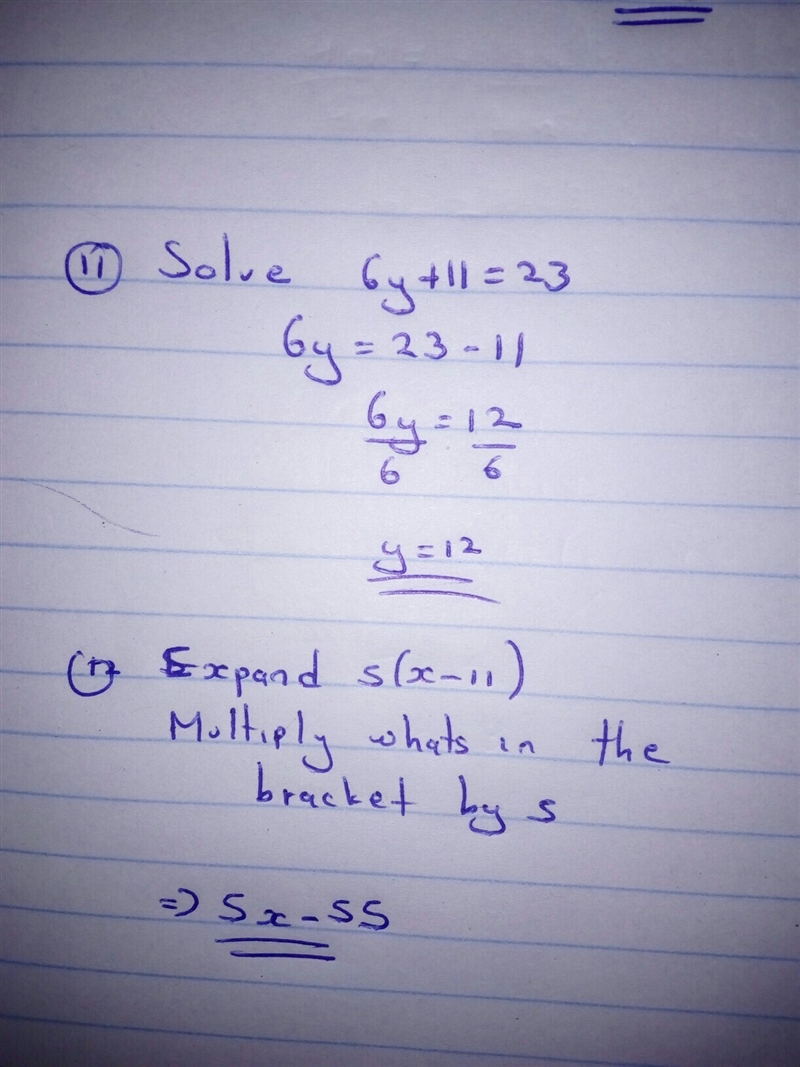 11 Solve 6y+11=23
6y = 23-11
6y = 12
6 6
y=12
Expand 5(x-11)
Multiply whats in the
bracket by 5
=> 5x-55